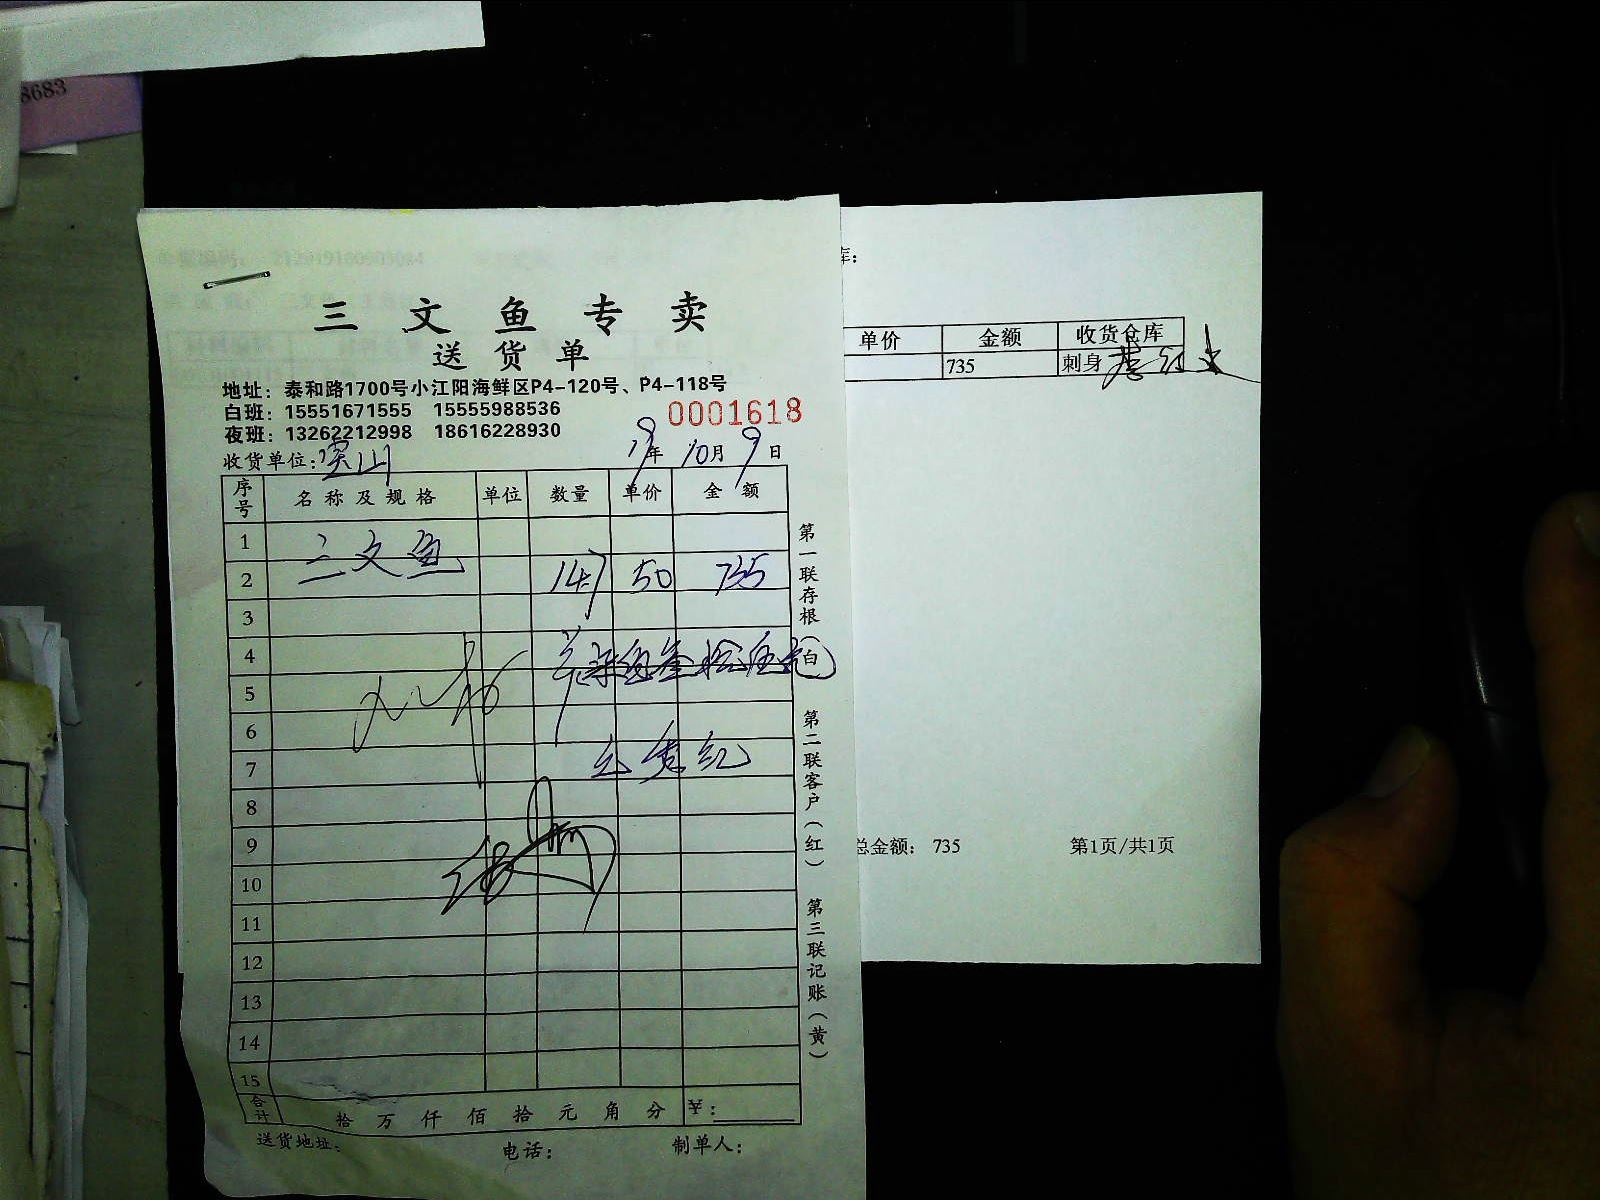 8683
三文鱼专卖
送货单
地址：泰和路1700号小江阳海鲜区P4-120号、P4-118号
白班：15551671555 15555988536
0001618
夜班：13262212998 18616228930
收货单位： 19年10月9日
序号 名称及规格 单位 数量 单价 金额
1 三文鱼
2 14.7 50 735
3
4 共柒佰叁拾伍元
5
6
7
8
9
10
11
12
13
14
15
合计 拾 万 仟 佰 拾 元 角 分 ¥：
送货地址： 电话： 制单人：
第一联存根（白）
第二联客户（红）
第三联记账（黄）
库：
单价 金额 收货仓库
735 刺身
总金额： 735 第1页/共1页